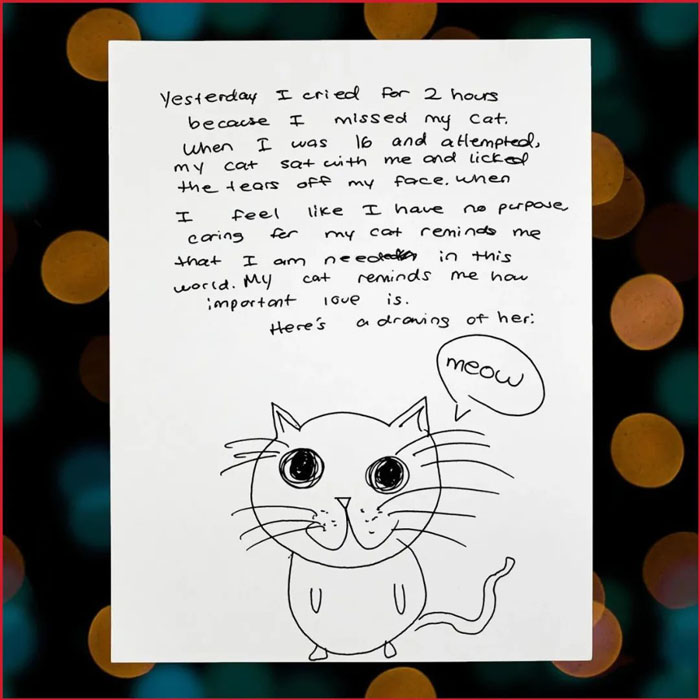 Yesterday I cried for 2 hours
because I missed my cat.
When I was 16 and attempted,
my cat sat with me and licked
the tears off my face. When
I feel like I have no purpose
caring for my cat reminds me
that I am needed in this
world. My cat reminds me how
important love is.
Here's a drawing of her:
meow